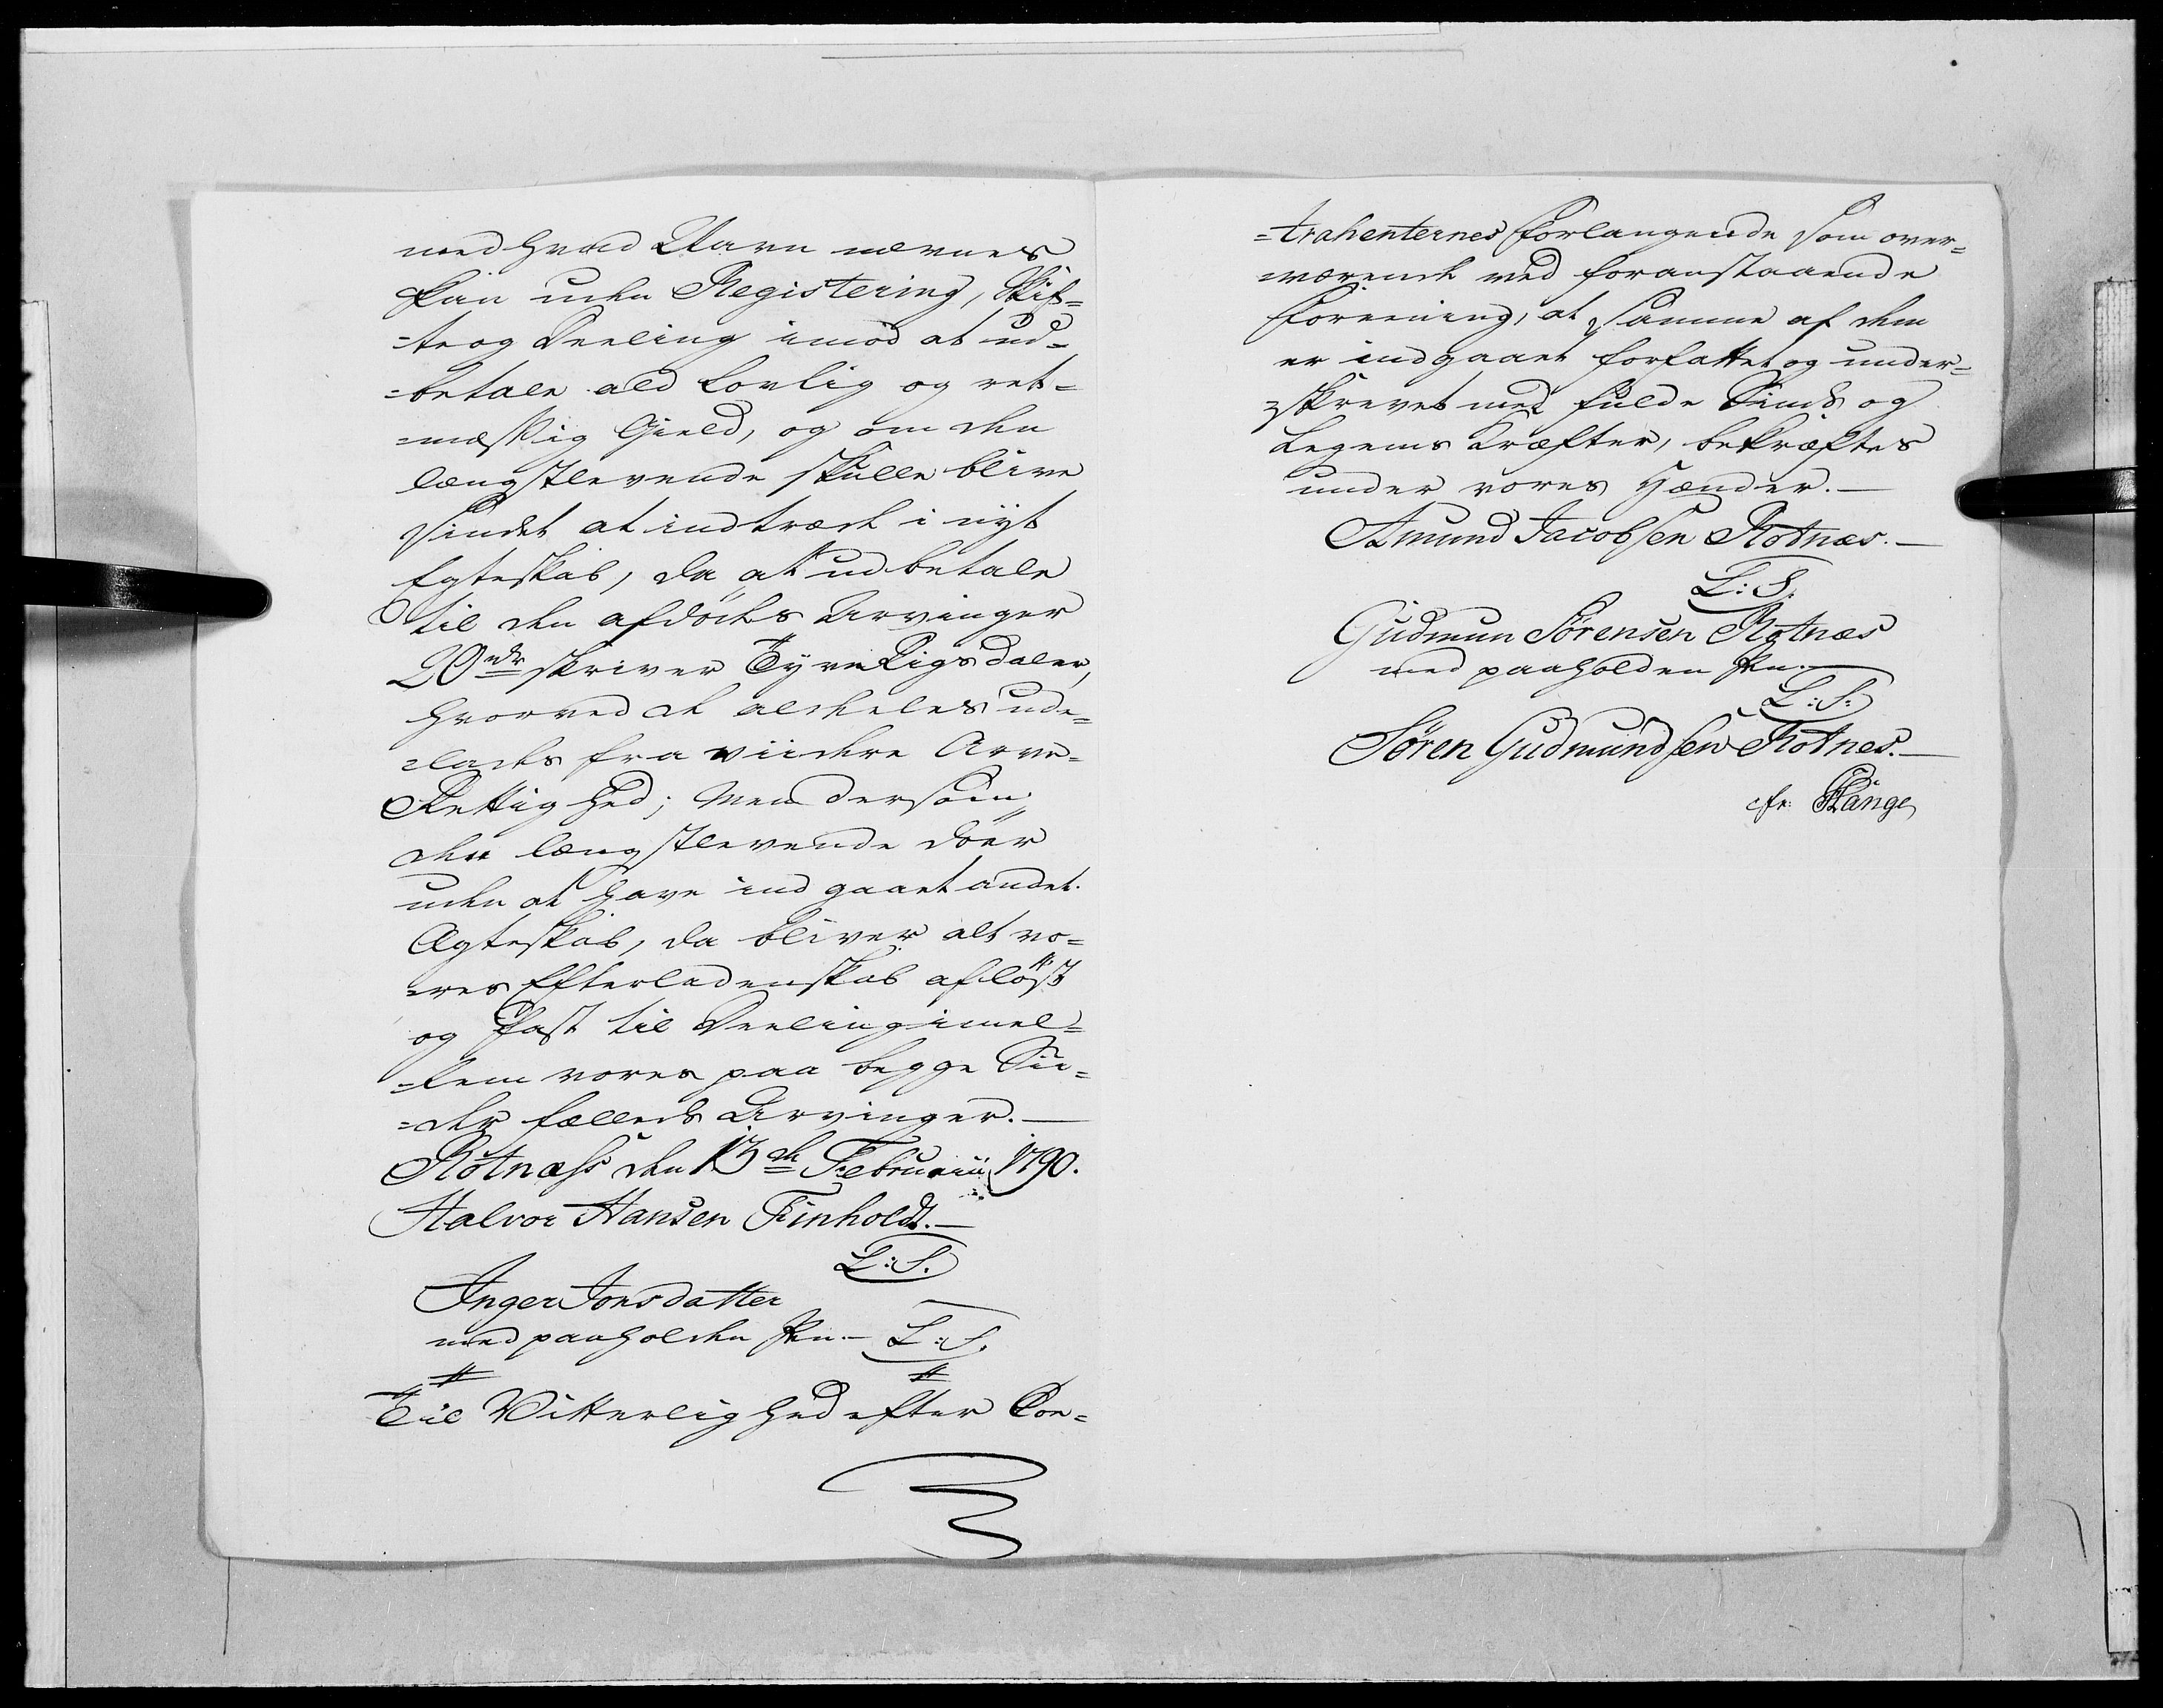 med hvad Navn nævnes
kan uden Registering, Skif¬
=te og Deeling imod at ud¬
=betale ald Lovlig og ret¬
=mæssig Gield, og om den
længstlevende skulle blive
sindet at indtræde i nÿt
Egteskab, da at udbetale
til den afdødes Arvinger
20 rdr skriver Tÿve Rigsdaler,
hvorved de aldeeles ude¬
=lades fra viidere Arve¬
Rettighed; Men dersom
den længstlevende döer
uden at have indgaaet andet
Ægteskab, da bliver alt vo¬
=res Efterladenskab aflöst
og fast til Deeling imel¬
=lem vores paa begge Sii¬
=der fælleds Arvinger.—
Rotnæss den 13de Februarii 1790.
Halvor Hansen Finholdt.—
L:S.
Inger Jonsdatter
med paaholden Pen.— L:S.
Til Vitterlighed efter Con¬
=trahenternes Forlangende som over¬
=værende ved foranstaaende
Foreening, at samme af dem
er indgaaet forfattet og under¬
=skrevet med fulde Sinds og
Legems Kræfter, bekræftes
under vores Hænder.—
Amund Jacobsen Rotnæs.—
L:S.
Gudmun Sörensen Rotnæs
med paaholden Pen.—
L:S:
Sören Gudmundsen Rotnes.—